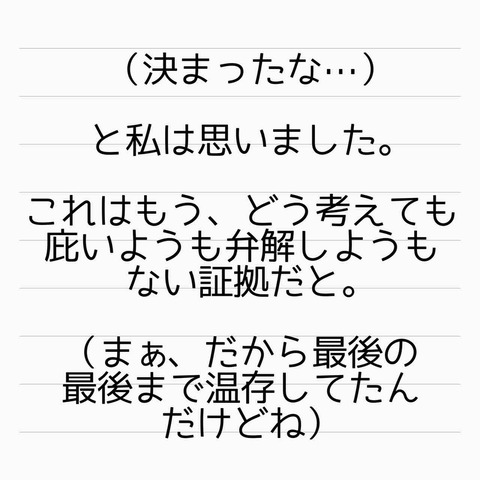 （決まったな…）
と私は思いました。
これはもう、どう考えても
庇いようも弁解しようも
ない証拠だと。
（まぁ、だから最後の
最後まで温存してたん
だけどね）